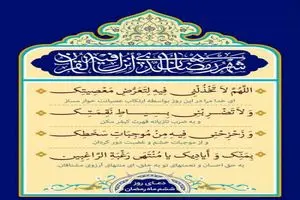 شهر رمضان الذی انزل فیه القرآن
اللّهُمَّ لا تَخْذُلْنی فیهِ لِتَعَرُّضِ مَعْصِیَتِکَ
ای خدا مرا در این روز بواسطه ارتکاب عصیانت خوار مساز
وَلا تَضْرِبْنی بِسِیاطِ نَقِمَتِکَ
و به ضرب تازیانه قهرت کیفر مکن
وَ زَحْزِحْنی فیهِ مِنْ مُوجِباتِ سَخَطِکَ
و از موجبات خشم و غضبت دور گردان
بِمَنِّکَ وَ اَیادیکَ یا مُنْتَهی رَغْبَةِ الرّاغِبینَ
به حق احسان و نعمتهای تو به خلق، ای منتهای آرزوی مشتاقان
دعـای روز
ششم ماه رمضان